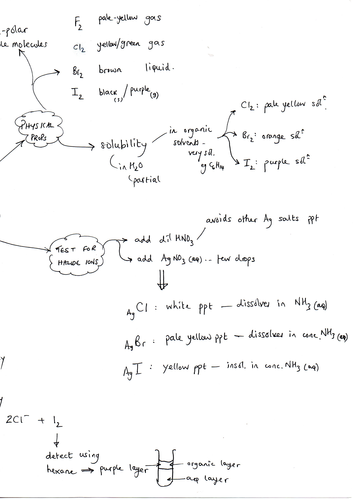 F₂ pale-yellow gas
-polar
le molecules
Cl₂ yellow/green gas
Br₂ brown liquid.
I₂ black (s) / purple (g)
PHYSICAL PROPS
solubility
in H₂O
partial
in organic
solvents.
very sol.
eg C₆H₁₄
Cl₂ : pale yellow solⁿ
Br₂ : orange solⁿ
I₂ : purple solⁿ
TEST FOR
HALIDE IONS
add dil HNO₃
avoids other Ag salts ppt
add AgNO₃ (aq) .. few drops
AgCl : white ppt — dissolves in NH₃ (aq)
AgBr : pale yellow ppt — dissolves in conc. NH₃ (aq)
AgI : yellow ppt — insol. in conc. NH₃ (aq)
2Cl⁻ + I₂
detect using
hexane → purple layer
organic layer
aq layer